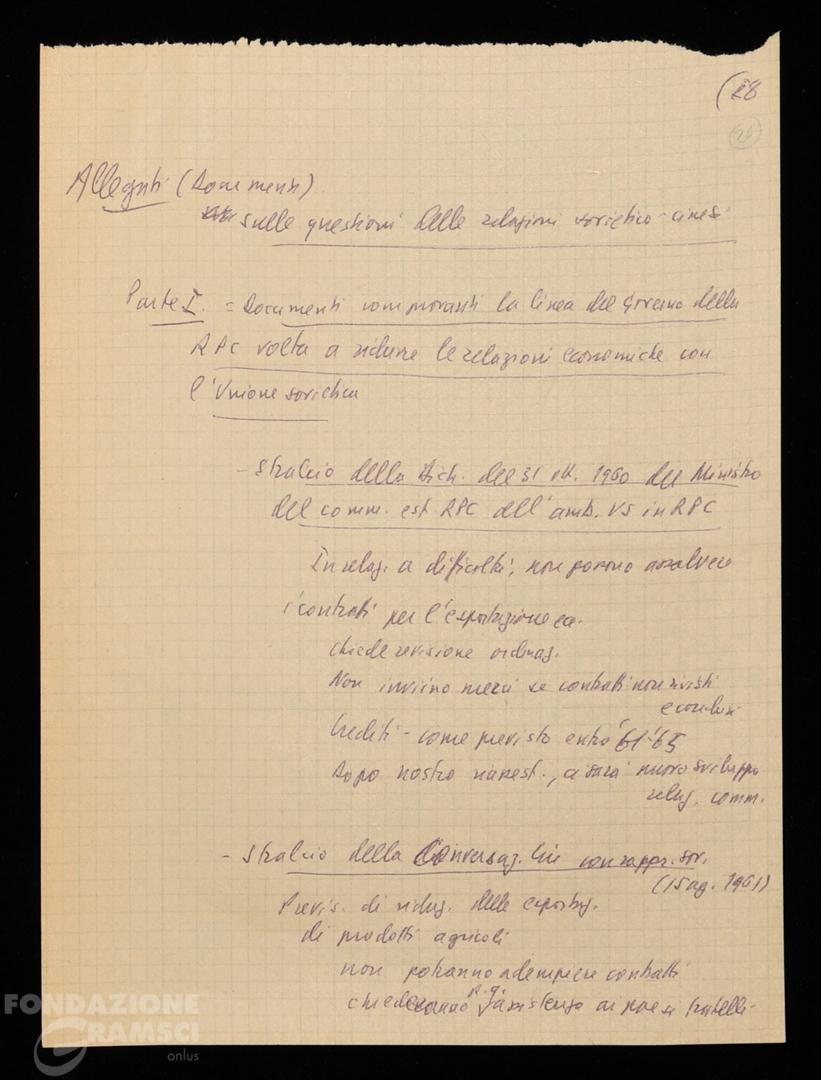 (28
(26)
Allegati (Documenti)
sulle questioni delle relazioni sovietico-cinesi
Parte I. = Documenti comprovanti la linea del Governo della
RPC volta a ridurre le relazioni economiche con
l'Unione sovietica
- Stralcio della Dich. del 31 ott. 1960 del Ministro
del comm. est. RPC all'amb. US in RPC
In relaz. a difficoltà, non possono assolvere
i contratti per l'esportazione ecc.
Chiede revisione ordinaz.
Non inviino merci se contratti non rivisti
e conclusi
Crediti - come previsto entro '61-'65
Dopo nostro riassest., ci sarà nuovo sviluppo
relaz. comm.
- Stralcio della Conversaz. con rappr. sov.
(15 ag. 1961)
Previs. di riduz. delle esportaz.
di prodotti agricoli
non potranno adempiere contratti
chiederanno assistenza ai paesi fratelli-
FONDAZIONE
GRAMSCI
onlus